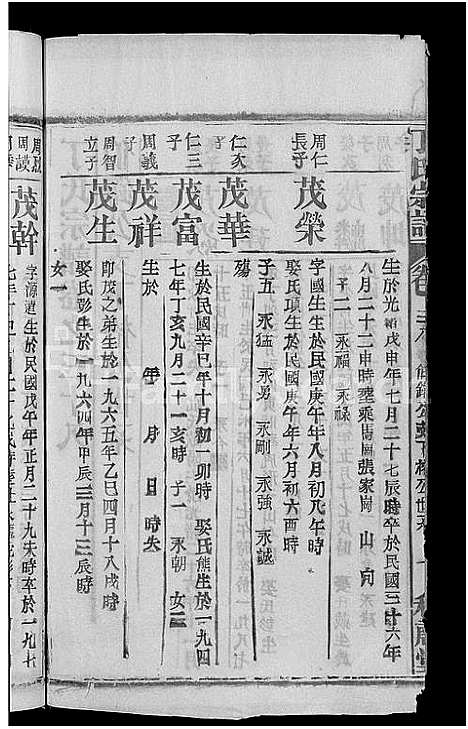 丁氏宗譜
生於光緒戊申年七月二十七辰時卒於民國三十六年
八月二十二申時塟乘馬崗張家崗 山 向
子二 永福 永祿
周仁長子 茂榮
字國生於民國庚午年八月初八午時
娶氏項生於民國庚午年六月初六酉時
子五 永猛 永勇 永剛 永強 永誠
仁次 茂華
殤
仁三子 茂富
生於民國辛巳年十月初一卯時 娶氏熊生於一九四
七年丁亥九月二十一亥時 子一 永朝 女二
周義子 茂祥
生於 年 月 日 時失
周智立子 茂生
即茂之弟生於一九六五年乙巳四月十八戌時
娶氏彭生於一九六四年甲辰三月十三辰時
女一
茂幹
字源道生於民國戊午年正月二十九未時卒於一九七